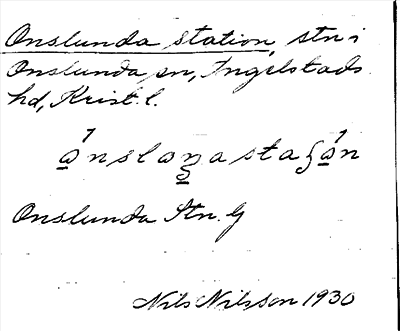 Onslunda station, stn i
Onslunda sn, Ingelstads
hd, Krist. l.
Onslunda Stn. G
Nils Nilsson 1930